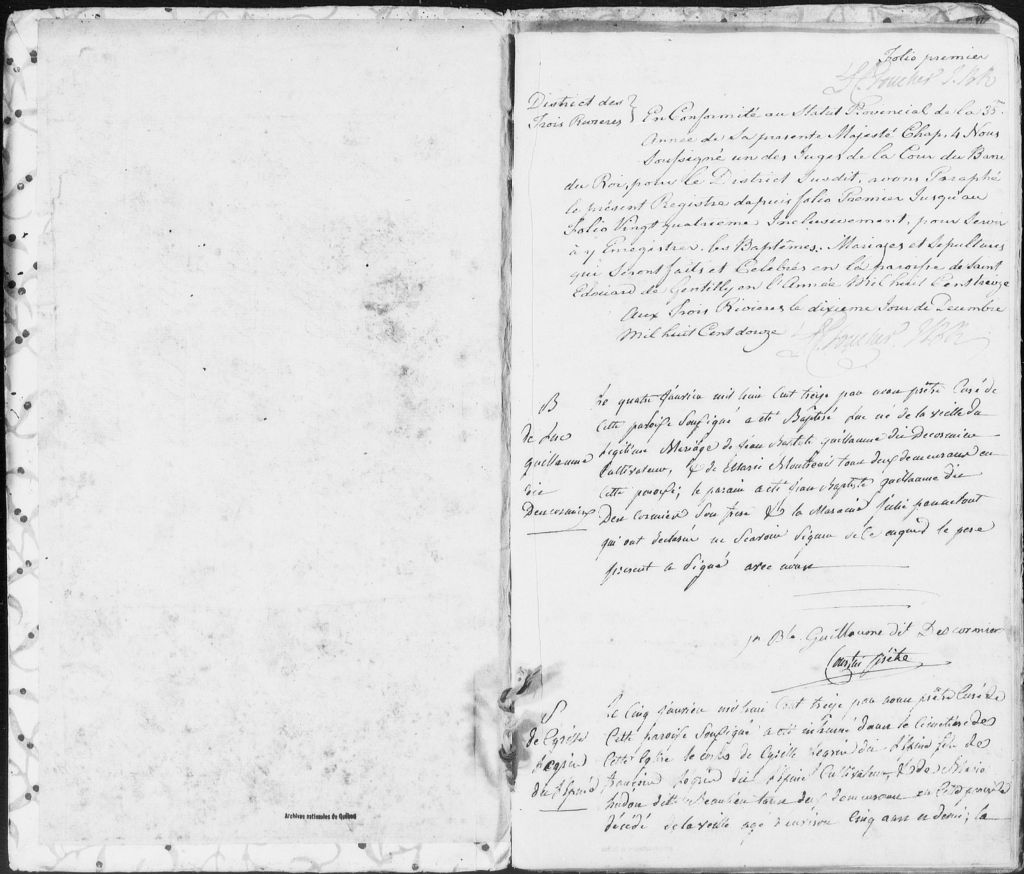 Folio premier
District des
Trois Rivieres
En Conformité au Statut Provincial de la 35me
Année de Sa presente Majesté Chap. 4 Nous
Soussigné un des Juges de la Cour du Banc
du Roi, pour le District Susdit, avons Paraphé
le présent Registre depuis folio Premier Jusqu'au
folio Vingt quatrieme Inclusivement, pour Servir
à y Enregistrer les Baptêmes, Mariages et Sepultures
qui Seront faits et Célebrés en la paroisse de Saint
Edouard de Gentilly en l'Année Mil huit Cent treize
Aux Trois Rivieres le dixieme Jour de Decembre
Mil huit Cent douze
B
de Luc
Guillaume
dit
Descormier
Le quatre Janvier mil huit Cent treize par nous prêtre Curé de
Cette paroisse Soussigné a été Baptisé Luc né de la veille du
Legitime Mariage de Jean Baptiste Guillaume dit Decormier
Cultivateur, & de Marie tous deux demeurans en
Cette paroisse; le parain a été Jean Baptiste Guillaume dit
Descormier Son frere & la Maraine
qui ont declaré ne Scavoir Signer de Ce enquis le pere
present a Signé avec nous
Jn Bte Guillaume dit Descormier
prêtre
S
de Cyrille
Le Cinq Janvier mil huit Cent treize par nous prêtre Curé de
Cette paroisse Soussigné a été inhumé dans le Cimetiere de
Cette Eglise le corps de Cyrille fils de
François Cultivateur, & de Marie
Beaulieu tous deux demeurans en Cette paroisse
décédé de la veille agé d'environ Cinq ans et demi; la
Archives nationales du Québec